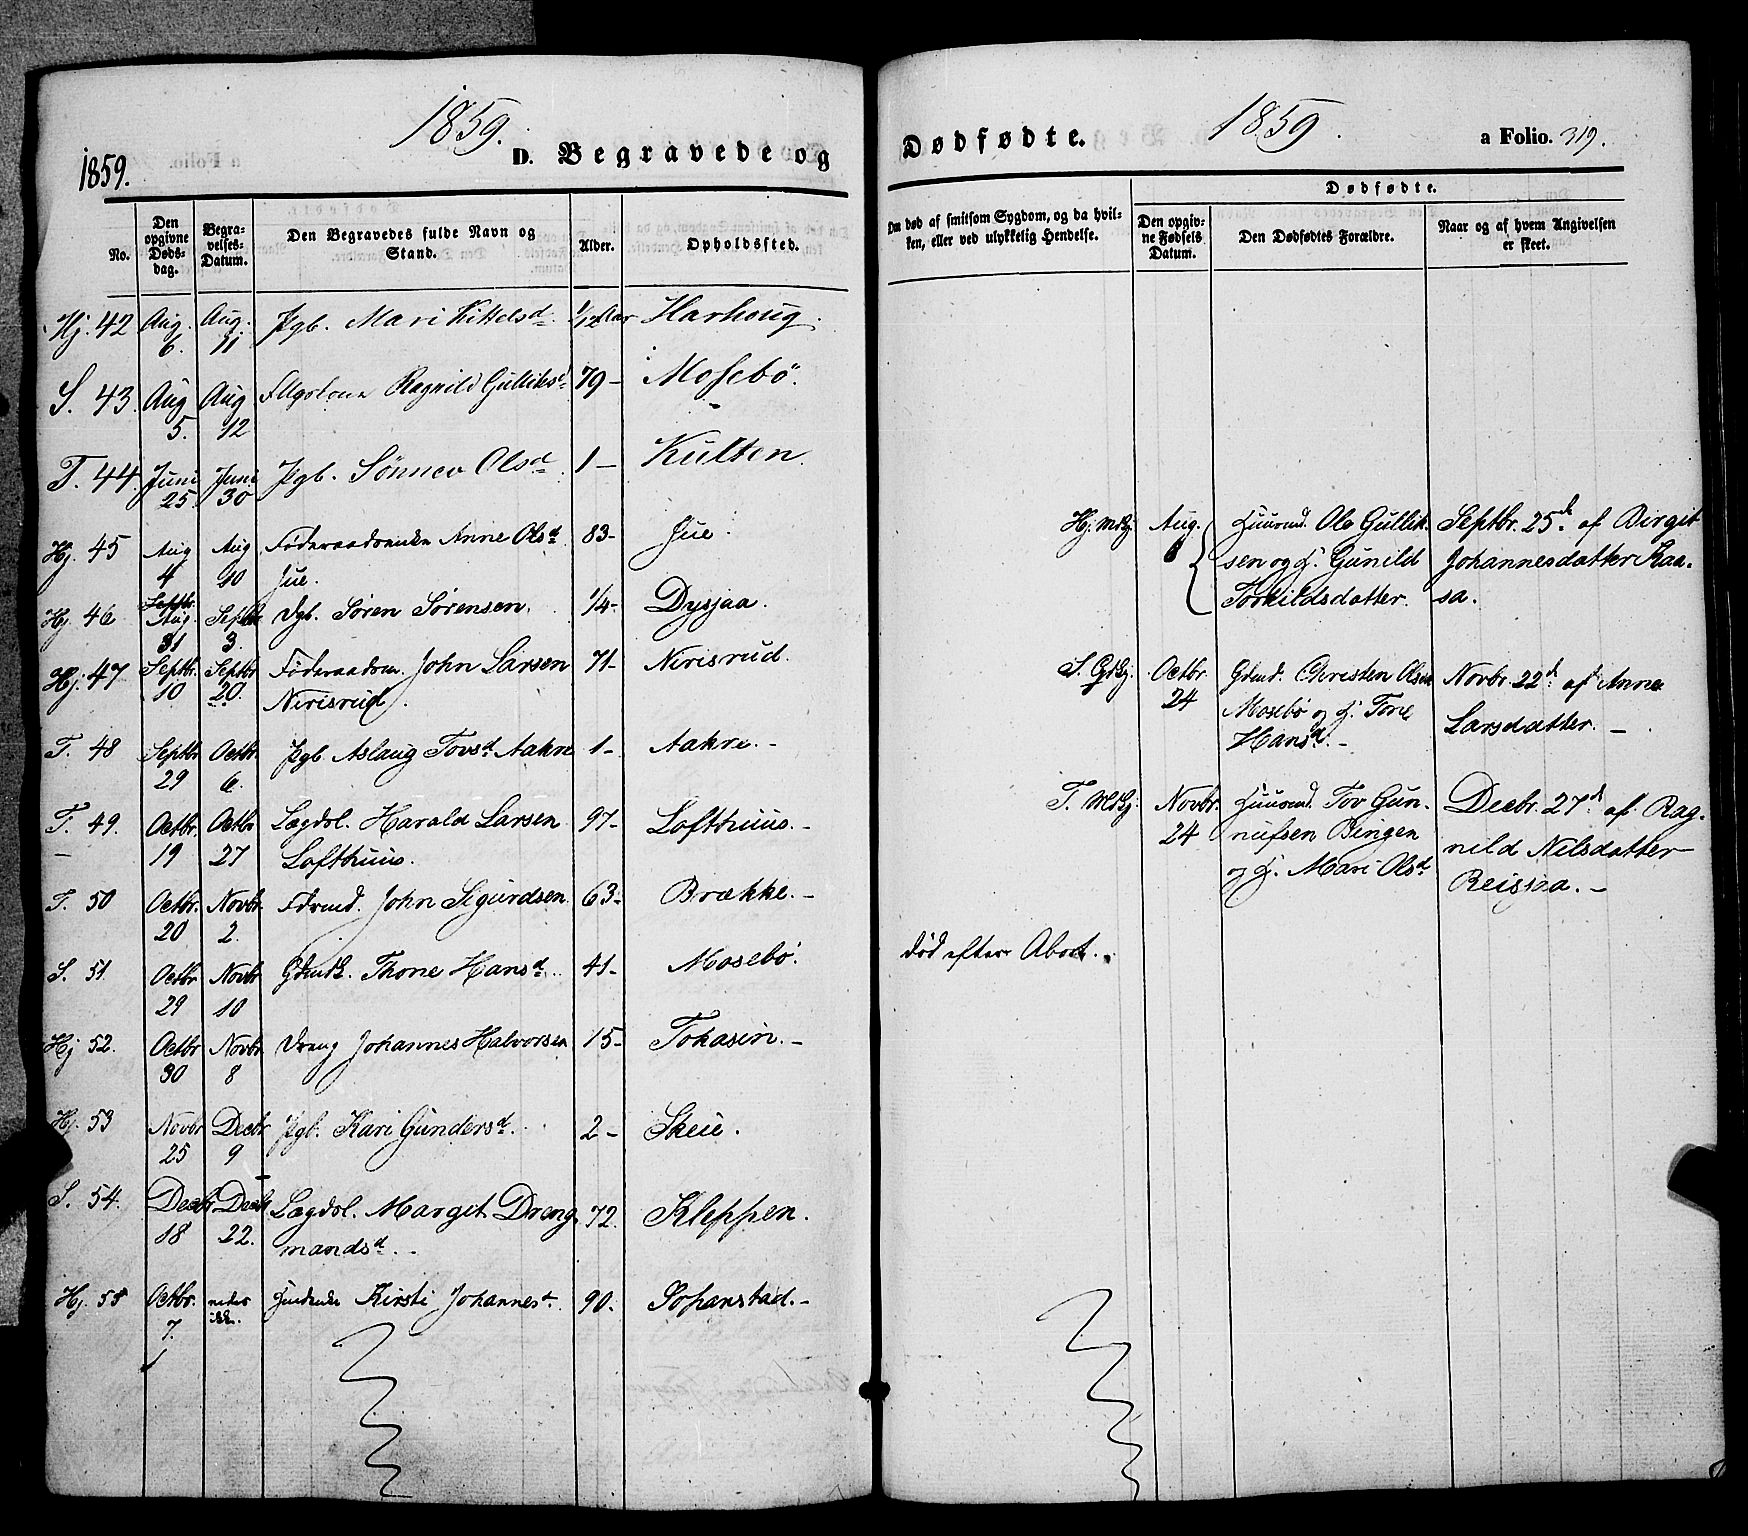 1859.
1859.
D. Begravede og
No.
Den opgivne Dødsdag.
Begravelses-Datum.
Den Begravedes fulde Navn og Stand.
Alder.
Opholdssted.
Hj. 42 Aug. 6. Aug. 11 Pgb. Mari Kittelsd. 1/12 Aar Harhoug.
S. 43. Aug 5. Aug 12 Ragnild Gulliksd. 79- Mosebø.
T. 44. Juni 25. Juni 30 Pgb. Sønnev Olsd. 1- Kulten.
Hj. 45 Aug 4 Aug 10 Føderaadsenke Anne Olsd. 83- Jue.
Jue.
Hj. 46 Septbr. Aug. 31 Septbr. 3. Dgb. Søren Sørensen. 1/4- Dysjaa.
Hj. 47 Septbr. 10 Septbr. 20. Føderaadsm. John Larsen 71- Nirisrud.
Nirisrud.
T. 48 Septbr. 29 Octbr. 6. Pgb. Aslaug Tovsd. Aakre 1- Aakre.-
T. 49. Octbr. 19 Octbr 27 Lægdsl. Harald Larsen 97- Lofthuus.-
Lofthuus.
T. 50 Octbr. 20 Novbr. 2. Fdrmd. John Sigurdsen 63- Brække.-
S. 51. Octbr 29 Novbr 10 Gdmk. Thone Hansd. 41- Mosebø.
Hj 52. Octbr 30 Novbr 8 Dreng Johannes Halvorsen 15- Tohasin.-
Hj. 53 Novbr 25 Decbr 9 Pgb. Kari Gundersd. 2- Skeie.
S. 54. Decbr 18 Decbr 22. Lægdsl. Marget Dreng- 72. Kleppen.
mandsd.-
Hj. 55 Octbr. 7. Kirsti Johannesd. 90.
Dødfødte.
1859.
a Folio. 319.
Om død af smitsom Sygdom, og da hvilken, eller ved ulykkelig Hendelse.
Dødfødte.
Den opgivne Fødsels Datum.
Den Dødfødtes Forældre.
Naar og af hvem Angivelsen er skeet.
Hj. Aug. 6 Huusmd. Ole Gullik- Septbr. 25de af Birgit
sen og H. Gunild Johannesdatter Kaa-
Torkildsdatter. sa.
S. Octbr. 24 Gdmd. Christen Olsen Novbr. 22d. af Anne
Mosebø og H. Tone Larsdatter.-
Hansd.-
T. Novbr. 24 Huusmd. Tov Gun- Decbr. 27de af Rag-
nufsen Bingen nild Nilsdatter
og H. Mari Olsd. Reisjaa.-
død efter Abort.